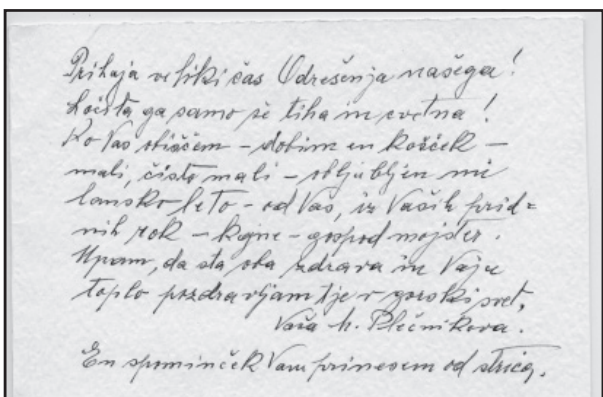 Prihaja veliki čas Odrešenja našega!
Ločita ga samo še tiha in cvetna!
Ko Vas obiščem - dobim en košček -
mali, čisto mali - obljubljen mi
lansko leto - od Vas, iz Vaših prid=
nih rok - kajne - gospod mojster.
Upam, da sta oba zdrava in Vaju
toplo pozdravljam tje v gorski svet,
Vaša h. Plečnikova.
En spominček Vam prinesem od strica.